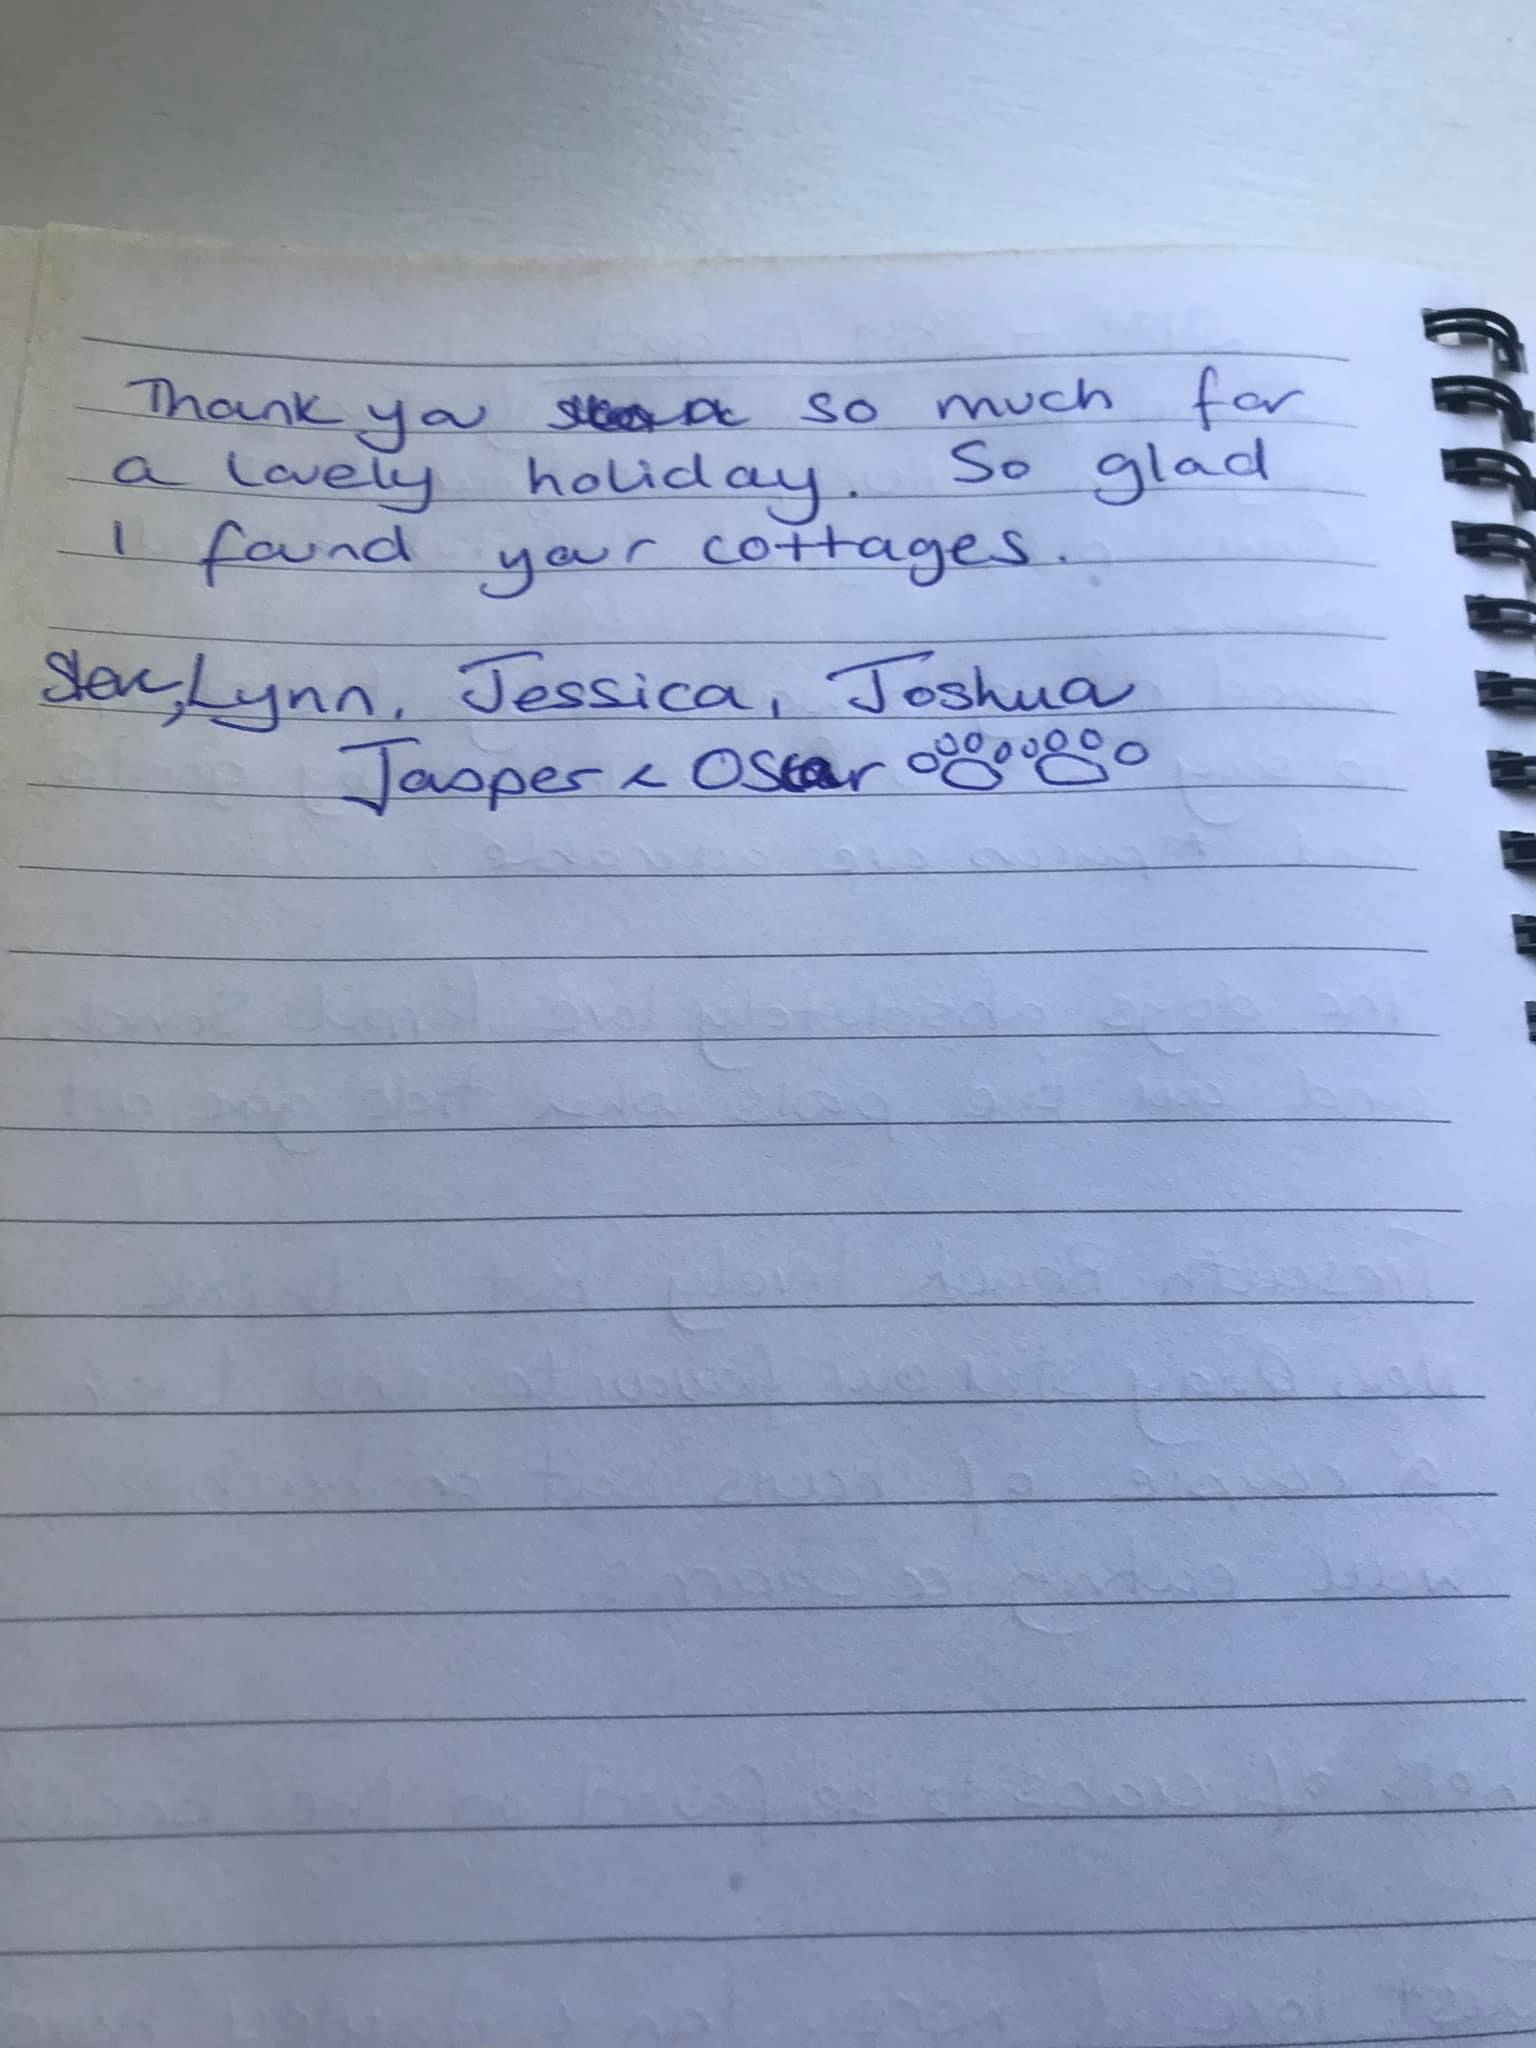 Thank you so much for
a lovely holiday. So glad
I found your cottages.
Steve, Lynn, Jessica, Joshua
Jasper & Oscar